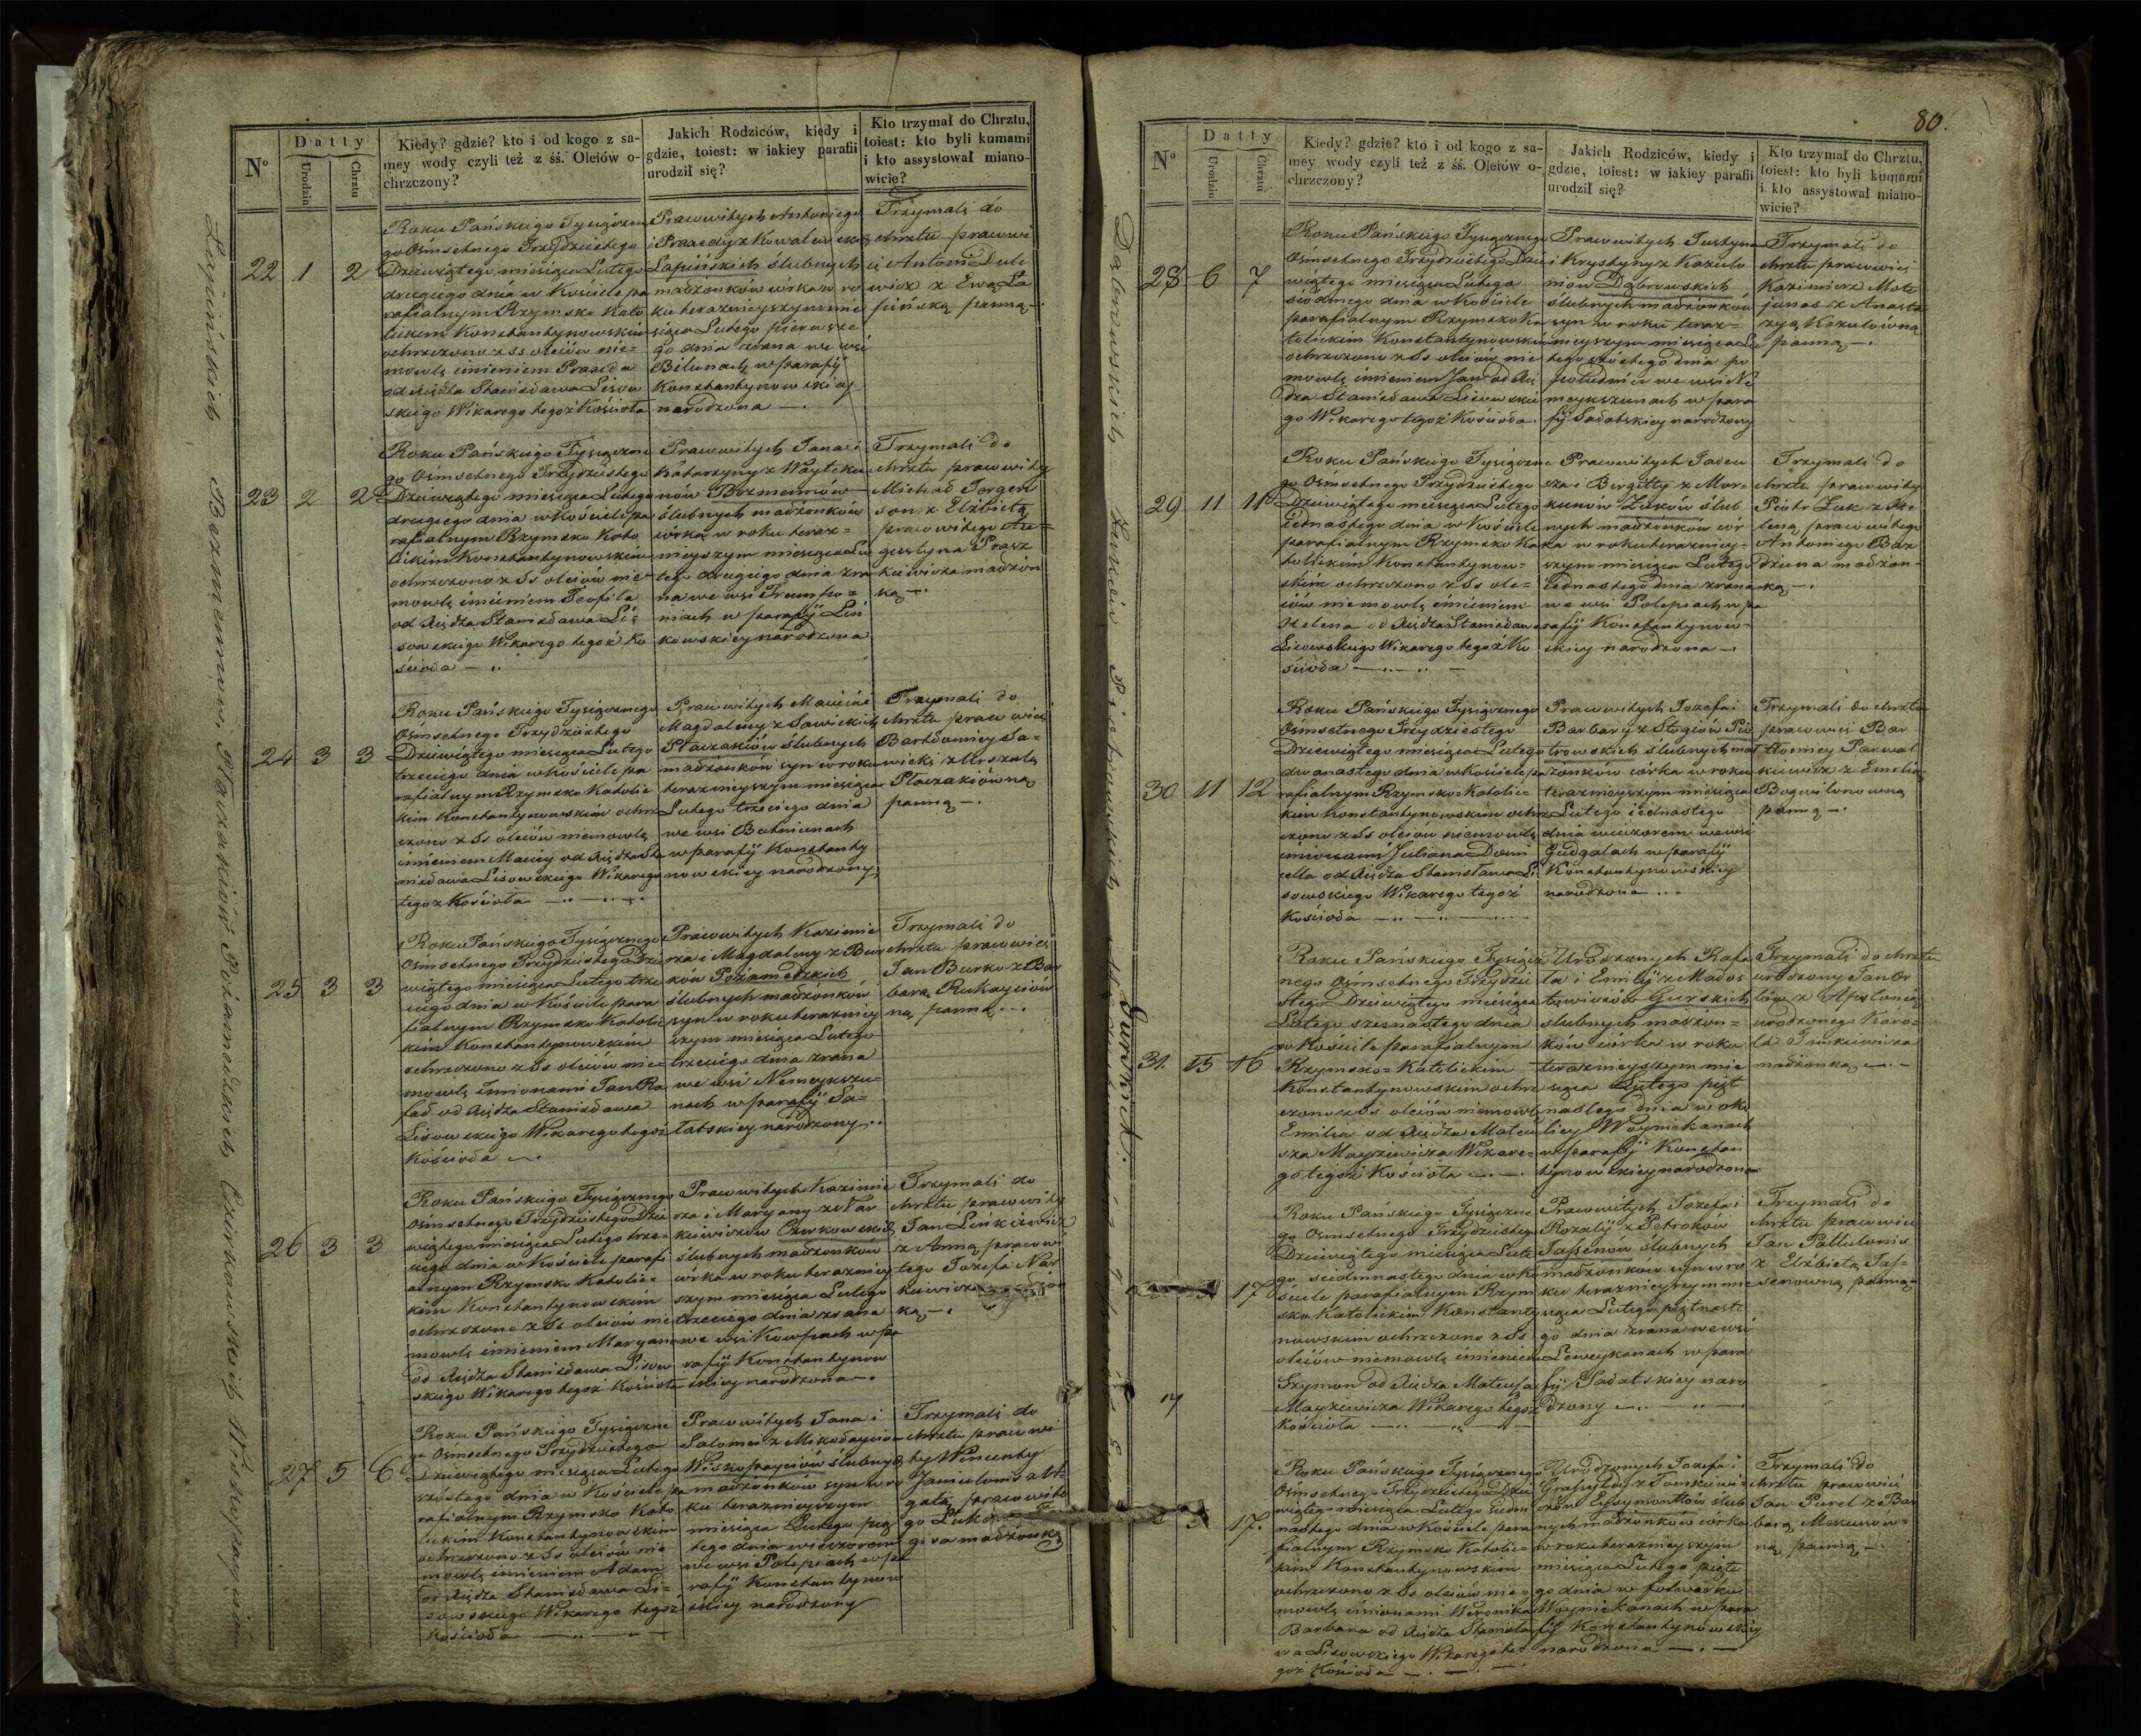 Nº
Datty
Urodzin
Chrztu
Kiedy? gdzie? kto i od kogo z sa-
mey wody czyli też z śś. Oleiów o-
chrzczony?
Jakich Rodziców, kiedy i
gdzie, toiest: w iakiey parafii
urodził się?
Kto trzymał do Chrztu,
toiest: kto byli kumami
i kto assystował miano-
wicie?
22 1 2
Roku Pańskiego Tysiączne
go Ośmsetnego Trzydziestego
Dziewiątego miesiąca Lutego
drugiego dnia w Kościele pa
rafialnym Rzymsko Kato
lickim Konstantynowskim
ochrzczono z Ss oleiów nie-
mowlę imieniem Praxeda
od Xiędza Stanisława Lisow
skiego Wikarego tegoż Kościoła
Prawowitych Antoniego
i Praxedy z Kowalewskich
Łapińskich ślubnych
małżonków córka w ro
ku teraznieyszym mie
siąca Lutego pierwsze
go dnia zrana we wsi
Bilunach w parafij
Konstantynowskiey
narodzona
Trzymali do
chrztu prawowi
ci Antoni Dule
wicz z Ewą Ła
pińską panną
23 2 2
Roku Pańskiego Tysiączne
go Ośmsetnego Trzydziestego
Dziewiątego miesiąca Lutego
drugiego dnia w Kościele pa
rafialnym Rzymsko Kato
lickim Konstantynowskim
ochrzczono z Ss oleiów nie-
mowlę imieniem Teofila
od Xiędza Stanisława Li-
sowskiego Wikarego tegoż Ko
ścioła
Prawowitych Jana i
Katarzyny z Woyteku
nów Bozmennów
ślubnych małżonków
córka w roku teraz-
nieyszym miesiąca Lu
tego drugiego dnia zra
na we wsi Trumpo-
niach w parafij Liń
kowskiey narodzona
Trzymali do
chrztu prawowity
Michał Jorgen
son z Elżbietą
prawowitego Au-
gustyna Prasz
kiewicza małżon
ką
24 3 3
Roku Pańskiego Tysiącznego
Ośmsetnego Trzydziestego
Dziewiątego miesiąca Lutego
trzeciego dnia w Kościele pa
rafialnym Rzymsko Katolic
kim Konstantynowskim ochrz
czono z Ss oleiów niemowlę
imieniem Maciey od Xiędza Sta
nisława Lisowskiego Wikarego
tegoż Kościoła
Prawowitych Macieia i
Magdaleny z Sawickich
Płaczakiów ślubnych
małżonków syn w roku
teraznieyszym miesiąca
Lutego trzeciego dnia
we wsi Butniunach
w parafij Konstanty
nowskiey narodzony
Trzymali do
chrztu prawowici
Bartłomiey Sa-
wicki z Urszulą
Płaczakiówną
panną
25 3 3
Roku Pańskiego Tysiącznego
Ośmsetnego Trzydziestego Dzie
wiątego miesiąca Lutego trze
ciego dnia w Kościele para
fialnym Rzymsko Katolic
kim Konstantynowskim
ochrzczono z Ss oleiów nie-
mowlę Imionami Jan Ra
fał od Xiędza Stanisława
Lisowskiego Wikarego tegoż
Kościoła
Prawowitych Kazimie
rza i Magdaleny z Bur
ków Pożameckich
ślubnych małżonków
syn w roku terazniey
szym miesiąca Lutego
trzeciego dnia zrana
we wsi Nemeykszu-
nach w parafij Sa-
łatskiey narodzony
Trzymali do
chrztu prawowici
Jan Burko z Bar
barą Rukayciów
ną panną
26 3 3
Roku Pańskiego Tysiącznego
Ośmsetnego Trzydziestego Dzie
wiątego miesiąca Lutego trze-
ciego dnia w Kościele parafi
alnym Rzymsko Katolic-
kim Konstantynowskim
ochrzczono z Ss oleiów nie
mowlę imieniem Maryana
od Xiędza Stanisława Lisow
skiego Wikarego tegoż Kościoła
Prawowitych Kazimie
rza i Maryany z Nar
kiewiczów Czurkowskich
ślubnych małżonków
córka w roku terazniey
szym miesiąca Lutego
trzeciego dnia zrana
we wsi Kowpiach w pa
rafij Konstantynow
skiey narodzona
Trzymali do
chrztu prawowity
Jan Linkiewicz
z Anną prawowi
tego Jozefa Nar
kiewicza
ką
27 5 6
Roku Pańskiego Tysiączne
go Ośmsetnego Trzydziestego
Dziewiątego miesiąca Lutego
szóstego dnia w Kościele pa
rafialnym Rzymsko Kato
lickim Konstantynowskim
ochrzczono z Ss oleiów nie
mowlę imieniem Adam
od Xiędza Stanisława Li-
sowskiego Wikarego tegoż
Kościoła
Prawowitych Jana i
Salomei z Mikołayciów
Wiskopayciów ślubnych
małżonków syn w ro
ku teraznieyszym
miesiąca Lutego pią
tego dnia wieczorem
we wsi Polepiach w pa
rafij Konstantynow
skiey narodzony
Trzymali do
chrztu prawowi
ty Wincenty
Janiulonis z
gatą prawowite
go
małżonką
Łapińskich Bozmennów Płaczakiów Pożameckich Czurkowskich Wiskopayciów
80.
Nº
Datty
Urodzin
Chrztu
Kiedy? gdzie? kto i od kogo z sa-
mey wody czyli też z śś. Oleiów o-
chrzczony?
Jakich Rodziców, kiedy i
gdzie, toiest: w iakiey parafii
urodził się?
Kto trzymał do Chrztu,
toiest: kto byli kumami
i kto assystował miano-
wicie?
28 6 7
Roku Pańskiego Tysiącznego
Ośmsetnego Trzydziestego Dzie
wiątego miesiąca Lutego
siódmego dnia w Kościele
parafialnym Rzymsko Ka
tolickim Konstantynowskim
ochrzczono z Ss oleiów nie
mowlę imieniem Jan od Xię
dza Stanisława Lisowskie
go Wikarego tegoż Kościoła
Prawowitych Justyna
i Krystyny z Kazulo
niów Dąbrowskich
ślubnych małżonków
syn w roku teraz-
nieyszym miesiąca Lu
tego szóstego dnia po
południu we wsi Ne
meykszunach w para
fij Sałatskiey narodzony
Trzymali do
chrztu prawowici
Kazimierz Mote
junas z Anasta
zyą Kazulówną
panną
29 11 11
Roku Pańskiego Tysiączne
go Ośmsetnego Trzydziestego
Dziewiątego miesiąca Lutego
iednastego dnia w Kościele
parafialnym Rzymsko Ka
tolickim Konstantynow-
skim ochrzczono z Ss ole-
iów niemowlę imieniem
Helena od Xiędza Stanisława
Lisowskiego Wikarego tegoż Ko
ścioła
Prawowitych Tadeu
sza i Birgitty z Mor-
kunów Żuków ślub
nych małżonków cór
ka w roku terazniey-
szym miesiąca Lutego
iednastego dnia zrana
we wsi Polepiach w pa
rafij Konstantynow-
skiey narodzona
Trzymali do
chrztu prawowity
Piotr Żuk z He
leną prawowitego
Antoniego Bar
dziuna małżon-
ką
30 11 12
Roku Pańskiego Tysiącznego
Ośmsetnego Trzydziestego
Dziewiątego miesiąca Lutego
dwunastego dnia w Kościele pa
rafialnym Rzymsko-Katolic-
kim Konstantynowskim ochrz
czono z Ss oleiów niemowlę
imionami Juliana Domi
cella od Xiędza Stanisława Li
sowskiego Wikarego tegoż
Kościoła
Prawowitych Jozefa i
Barbary z Stogiów Pio
trowskich ślubnych mał
żonków córka w roku
teraznieyszym miesiąca
Lutego iednastego
dnia wieczorem we wsi
Gudgalach w parafij
Konstantynowskiey
narodzona
Trzymali do chrztu
prawowici Bar
tłomiey Parwal
kiewicz z Emilią
Bogwilonowną
panną
31. 15 16
Roku Pańskiego Tysiącz
nego Ośmsetnego Trzydzie
stego Dziewiątego miesiąca
Lutego szesnastego dnia
w Kościele parafialnym
Rzymsko-Katolickim
Konstantynowskim ochrz
czono z Ss oleiów niemowlę
Emilia od Xiędza Mateu
sza Mayziewicza Wikare-
go tegoż Kościoła
Urodzonych Rafa
ła i Emilij z Mados
towiczów Gurskich
ślubnych małżon-
ków córka w roku
teraznieyszym mie
siąca Lutego pięt
nastego dnia w oko
licy Woyniekanach
w parafij Konstan
tynowskiey narodzona
Trzymali do chrztu
urodzony Jan Or
łow z Apolonią
urodzonego Karo-
la Tomkiewicza
małżonką
17
Roku Pańskiego Tysiączne
go Ośmsetnego Trzydziestego
Dziewiątego miesiąca Lute
go siedmnastego dnia w Ko
ściele parafialnym Rzym
sko Katolickim Konstanty
nowskim ochrzczono z Ss
oleiów niemowlę imieniem
Szymon od Xiędza Mateusza
Mayziewicza Wikarego tegoż
Kościoła
Prawowitych Jozefa i
Rozalij z Petroków
Jasienów ślubnych
małżonków syn w ro
ku teraznieyszym mie
siąca Lutego piętnaste
go dnia zrana we wsi
Leweykanach w para
fij Sałatskiey naro
dzony
Trzymali do
chrztu prawowici
Jan Pallulonis
z Elżbietą Jas-
senowną panną
17.
Roku Pańskiego Tysiącznego
Ośmsetnego Trzydziestego Dzie
wiątego miesiąca Lutego siedm
nastego dnia w Kościele para
fialnym Rzymsko Katolic-
kim Konstantynowskim
ochrzczono z Ss oleiów nie-
mowlę imionami Weronika
Barbara od Xiędza Stanisła
wa Lisowskiego Wikarego te-
goż Kościoła
Urodzonych Jozefa i
z Tomkiewi
czów Eysymonttów ślub
nych małżonków córka
w roku teraznieyszym
miesiąca Lutego piąte
go dnia w folwarku
Woyniekanach w para
fij Konstantynowskiey
narodzona
Trzymali do
chrztu prawowici
Jan Purel z Bar
barą Mekunow-
ną panną
Dąbrowskich Żuków Piotrowskich
Gurskich.